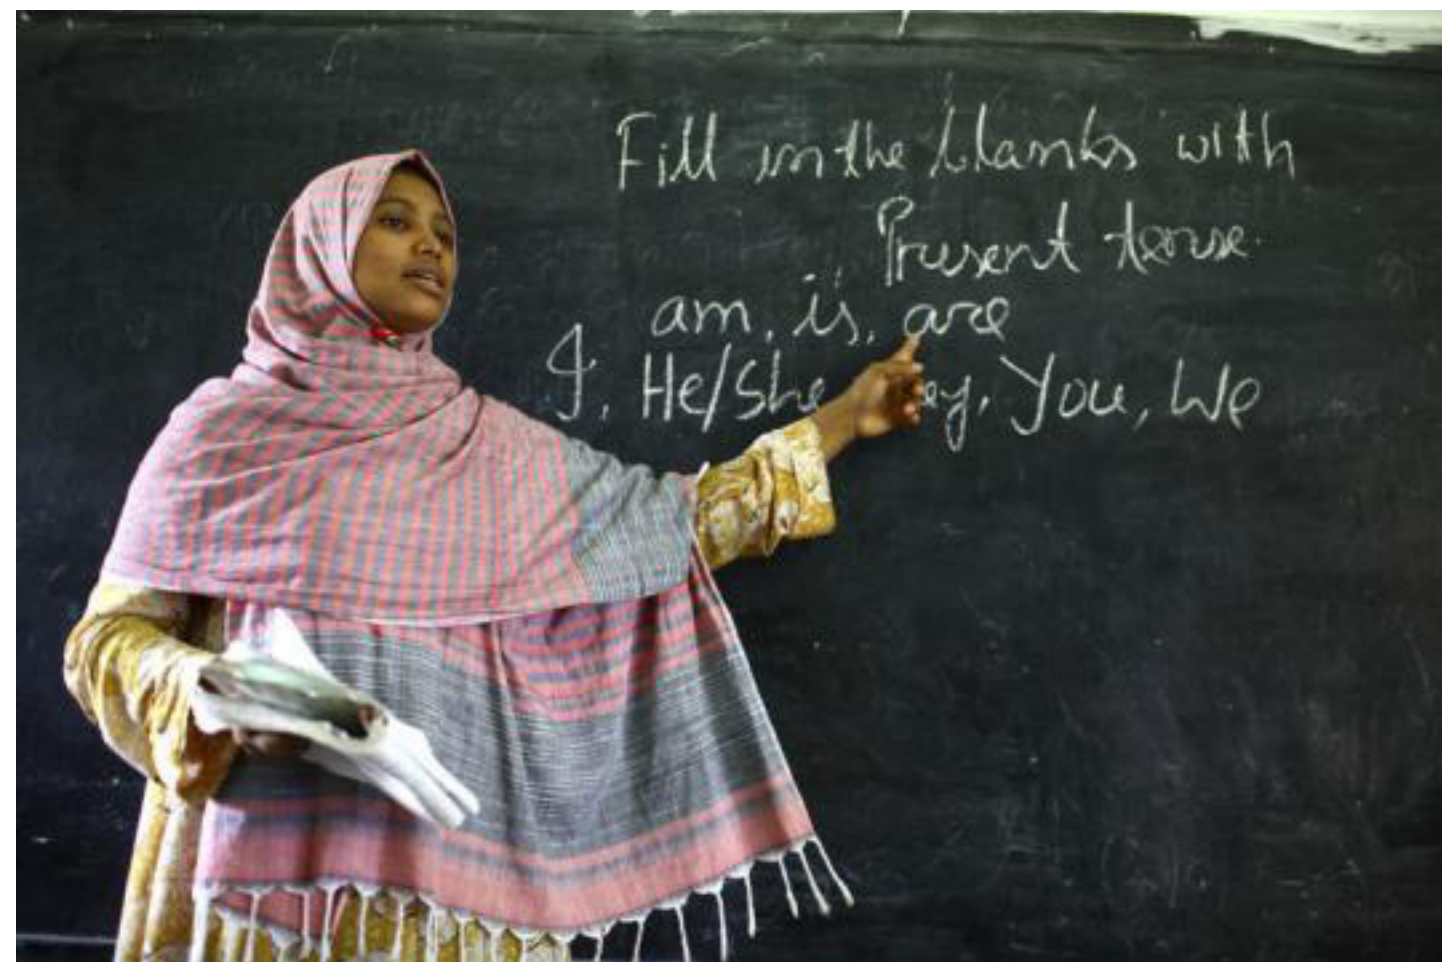 Fill in the blanks with
Present tense.
am, is, are
I, He/She ey, You, We